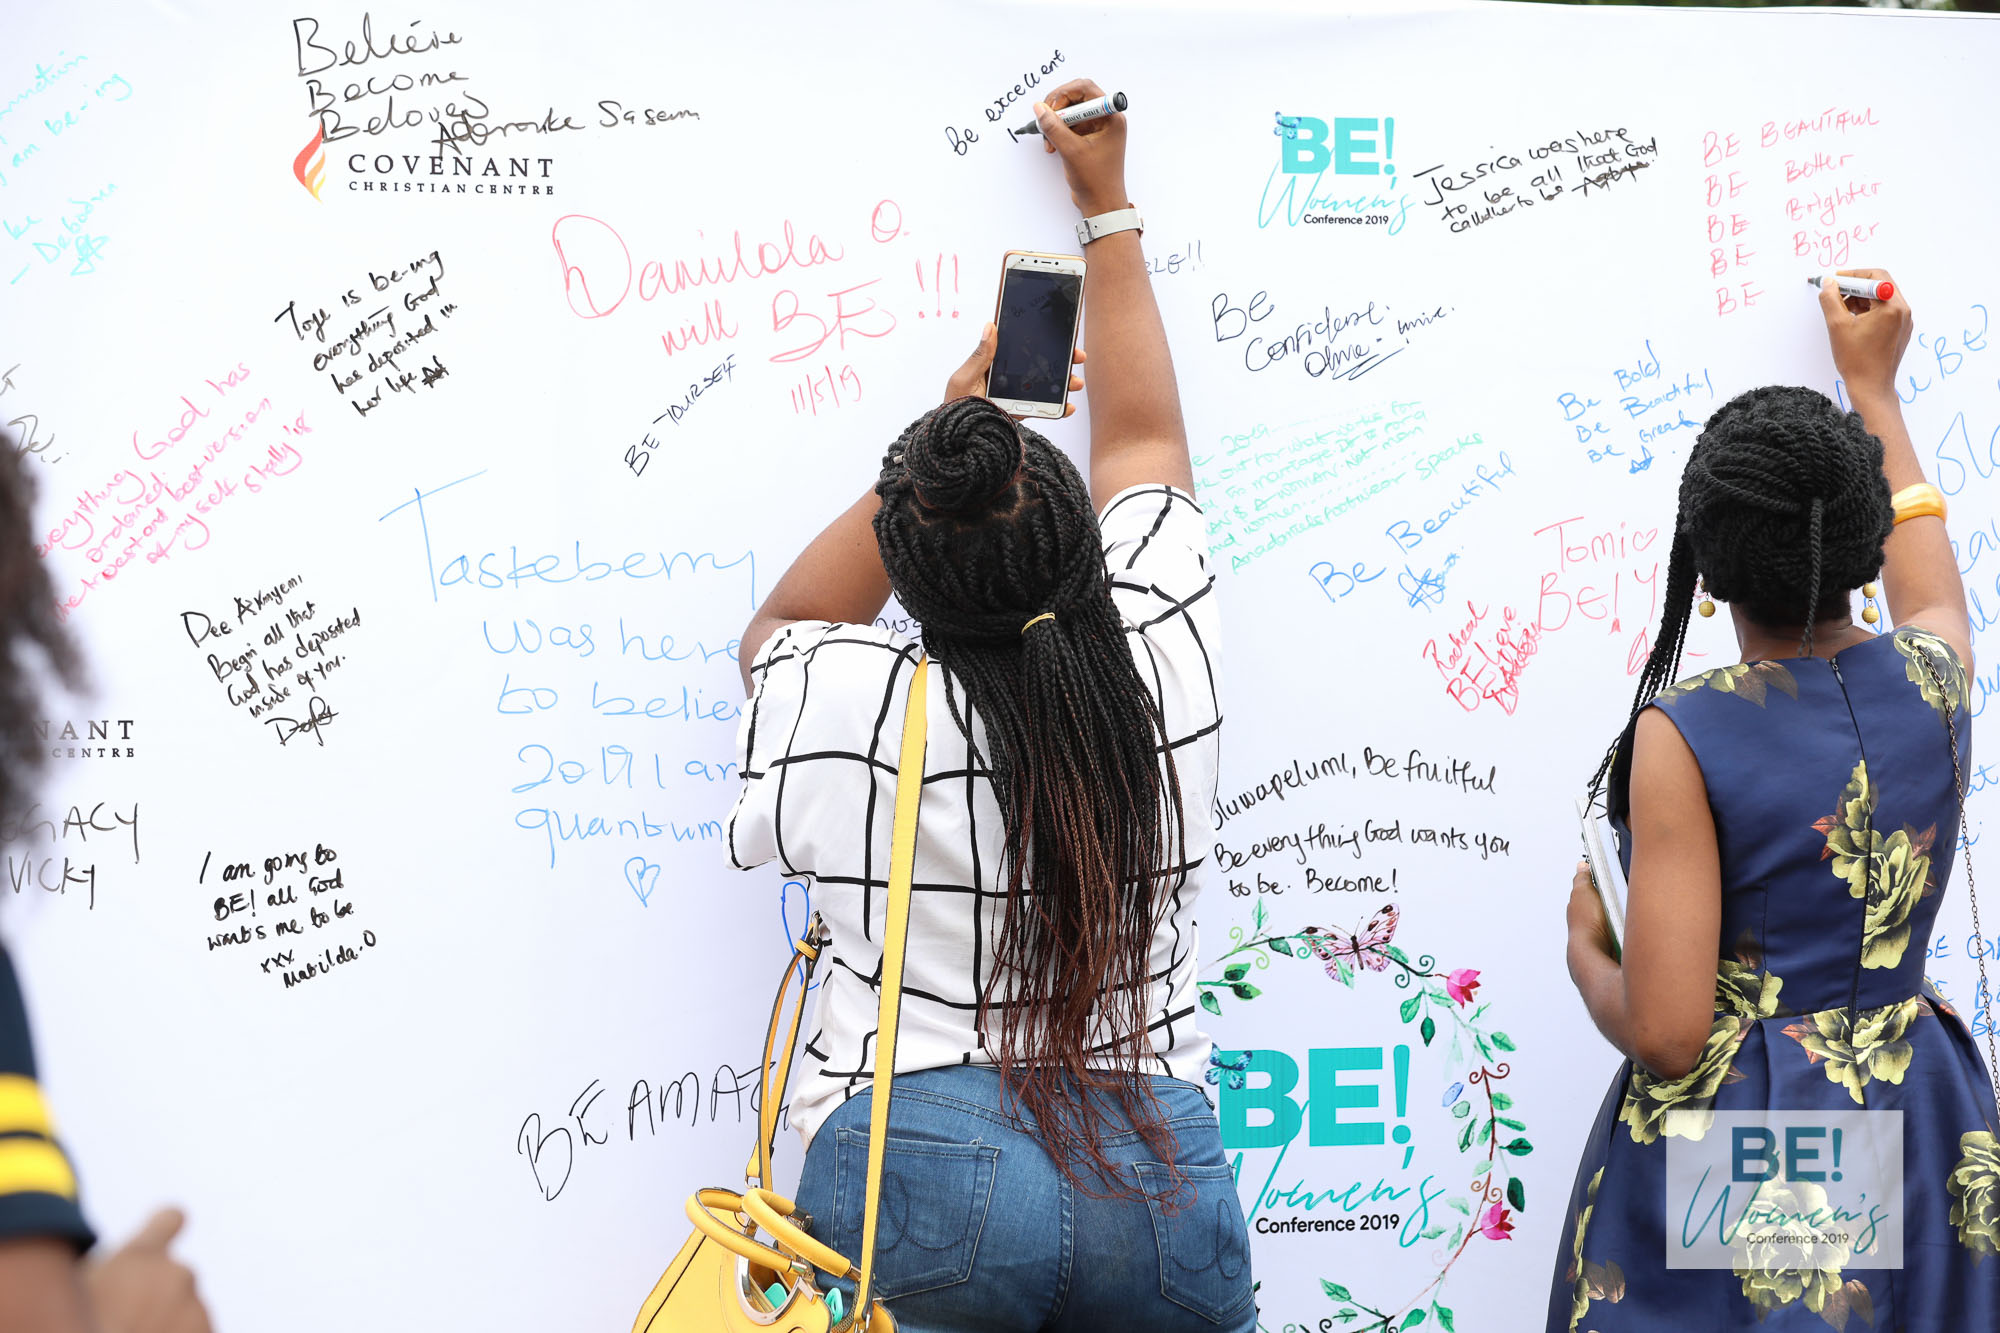 Believe
Become
Beloved
Sasem
COVENANT
CHRISTIAN CENTRE
am be-ing
be
- Deborah
Be excellent
BE!
Women's
Conference 2019
Jessica was here
to be all that God
to be
BE BEAUTIFUL
BE Better
BE Brighter
BE Bigger
BE
Damilola O.
will BE!!!
11/5/19
Toye is be-ing
everything God
has deposited in
her life
BE YOURSELF
BLE!!
BE
Confident.
Olivia.
Be Bold
Be Beautiful
Be Great
Be
everything God has
ordained:
the best and best version
of my self
Tasteberry
was here
to belie
2019 I am
quantum
2019
out for what works for
marriage
women. Not man
and women.
footwear speaks
Be Beautiful
Tomi
BE!
Racheal
BElieve
'BE'
Dee
Begin all that
God has deposited
inside of you.
NANT
CENTRE
GACY
VICKY
I am going to
BE! all God
want's me to be
xxx
Matilda.O
luwapelumi, Be fruitful
Be everything God wants you
to be. Become!
BE AMAZ
BE!
Women's
Conference 2019
BE!
Women's
Conference 2019